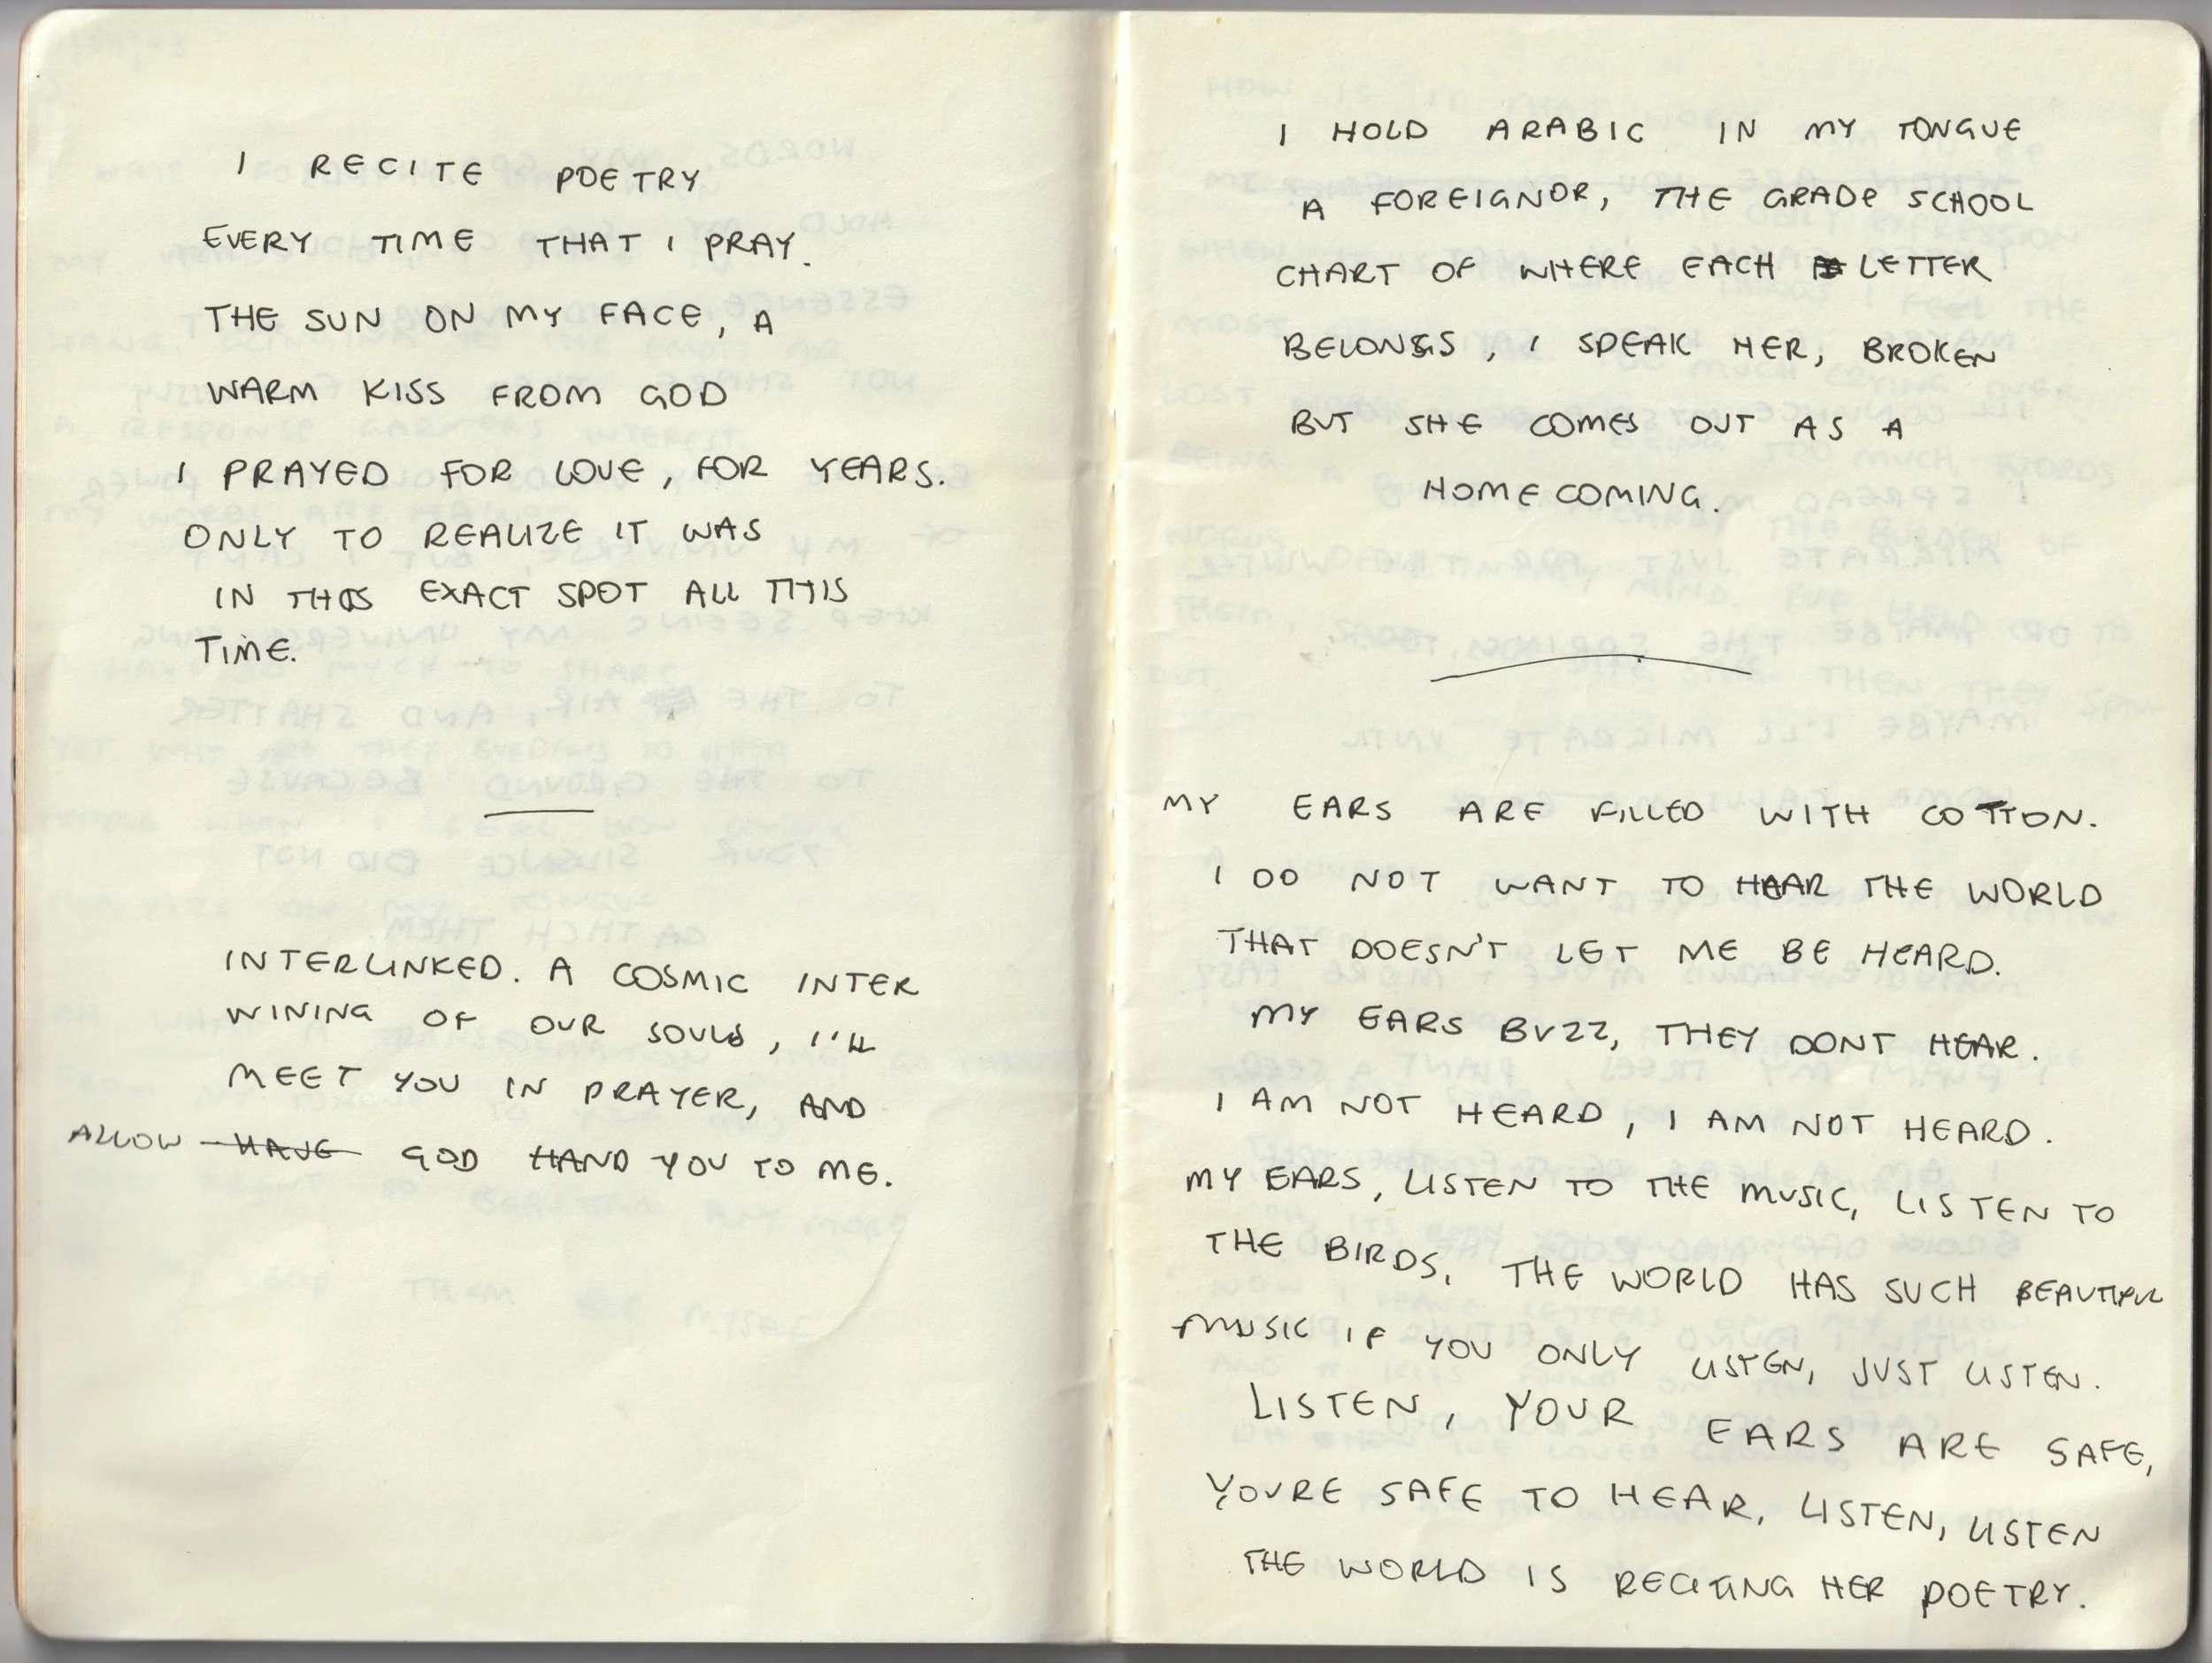 I RECITE POETRY
EVERY TIME THAT I PRAY.
THE SUN ON MY FACE, A
WARM KISS FROM GOD
I PRAYED FOR LOVE, FOR YEARS.
ONLY TO REALIZE IT WAS
IN THIS EXACT SPOT ALL THIS
TIME.
INTERLINKED. A COSMIC INTER
WINING OF OUR SOULS, I'LL
MEET YOU IN PRAYER, AND
ALLOW HAVE GOD HAND YOU TO ME.
I HOLD ARABIC IN MY TONGUE
A FOREIGNOR, THE GRADE SCHOOL
CHART OF WHERE EACH LETTER
BELONGS, I SPEAK HER, BROKEN
BUT SHE COMES OUT AS A
HOMECOMING.
MY EARS ARE FILLED WITH COTTON.
I DO NOT WANT TO HEAR THE WORLD
THAT DOESN'T LET ME BE HEARD.
MY EARS BUZZ, THEY DONT HEAR.
I AM NOT HEARD, I AM NOT HEARD.
MY EARS, LISTEN TO THE MUSIC, LISTEN TO
THE BIRDS. THE WORLD HAS SUCH BEAUTIFUL
MUSIC IF YOU ONLY LISTEN, JUST LISTEN.
LISTEN, YOUR EARS ARE SAFE,
YOURE SAFE TO HEAR, LISTEN, LISTEN
THE WORLD IS RECITING HER POETRY.